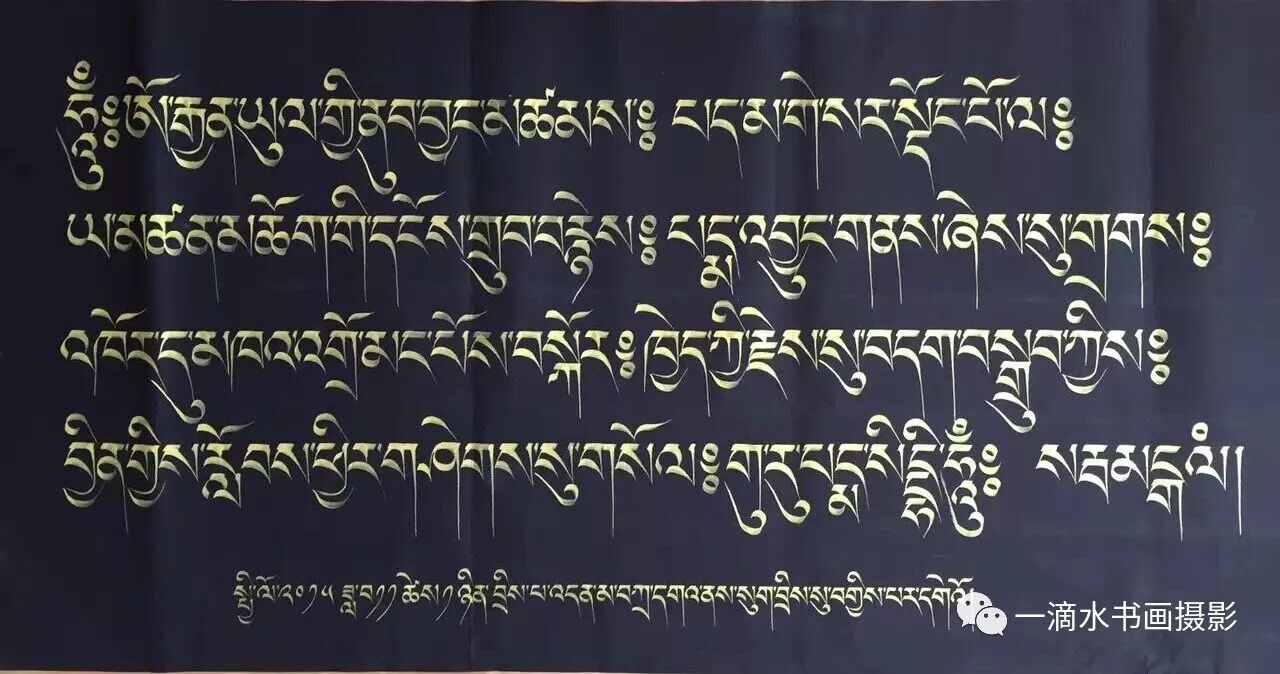 ཧཱུྃ༔ ཨོ་རྒྱན་ཡུལ་གྱི་ནུབ་བྱང་མཚམས༔ པད་མ་གེ་སར་སྡོང་པོ་ལ༔
ཡ་མཚན་མཆོག་གི་དངོས་གྲུབ་བརྙེས༔ པདྨ་འབྱུང་གནས་ཞེས་སུ་གྲགས༔
འཁོར་དུ་མཁའ་འགྲོ་མང་པོས་བསྐོར༔ ཁྱེད་ཀྱི་རྗེས་སུ་བདག་བསྒྲུབ་ཀྱིས༔
བྱིན་གྱིས་རློབས་ཕྱིར་གཤེགས་སུ་གསོལ༔ གུ་རུ་པདྨ་སིདྡྷི་ཧཱུྃ༔ སརྦ་མངྒ་ལཾ།།
སྤྱི་ལོ་༢༠༡༥ ཟླ་བ་༡༡ ཚེས་༡ ཉིན་བྲིས་པ་འདན་མ་བཀྲ་དགའ་ནས་སུག་བྲིས་སུ་བགྱིས་པར་དགེའོ།
一滴水书画摄影